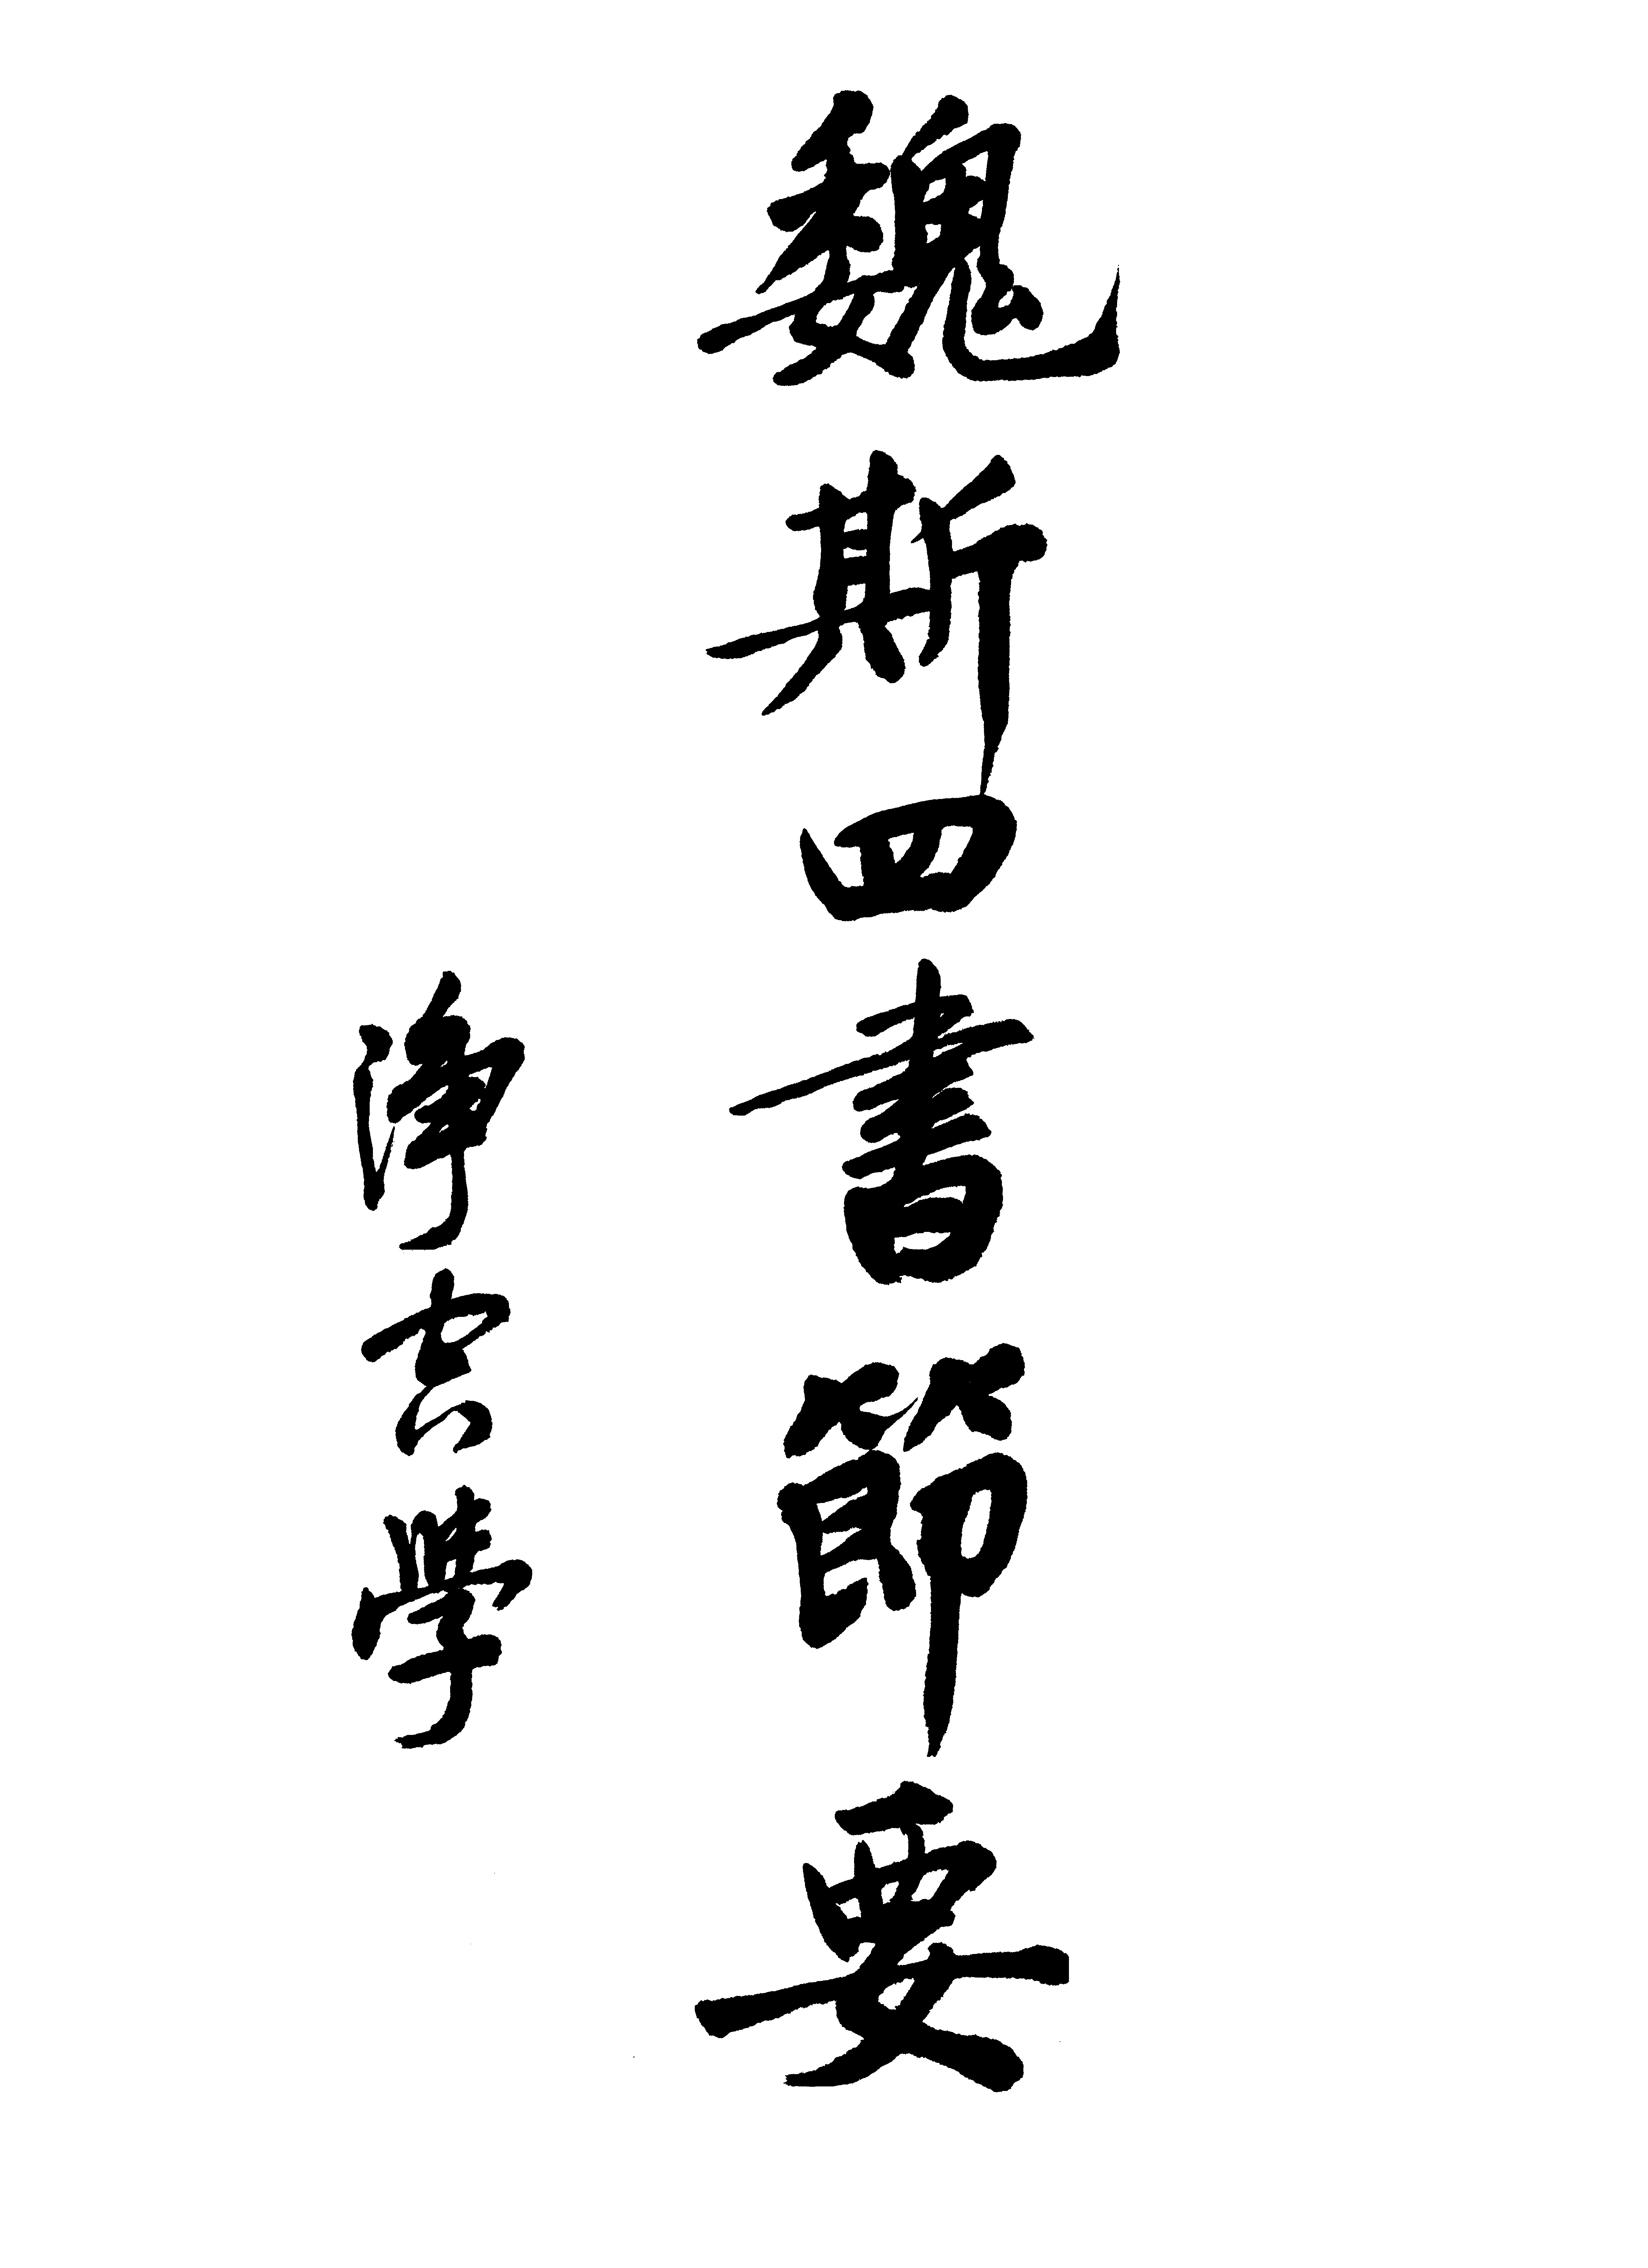 魏斯四書節要
淨雲學